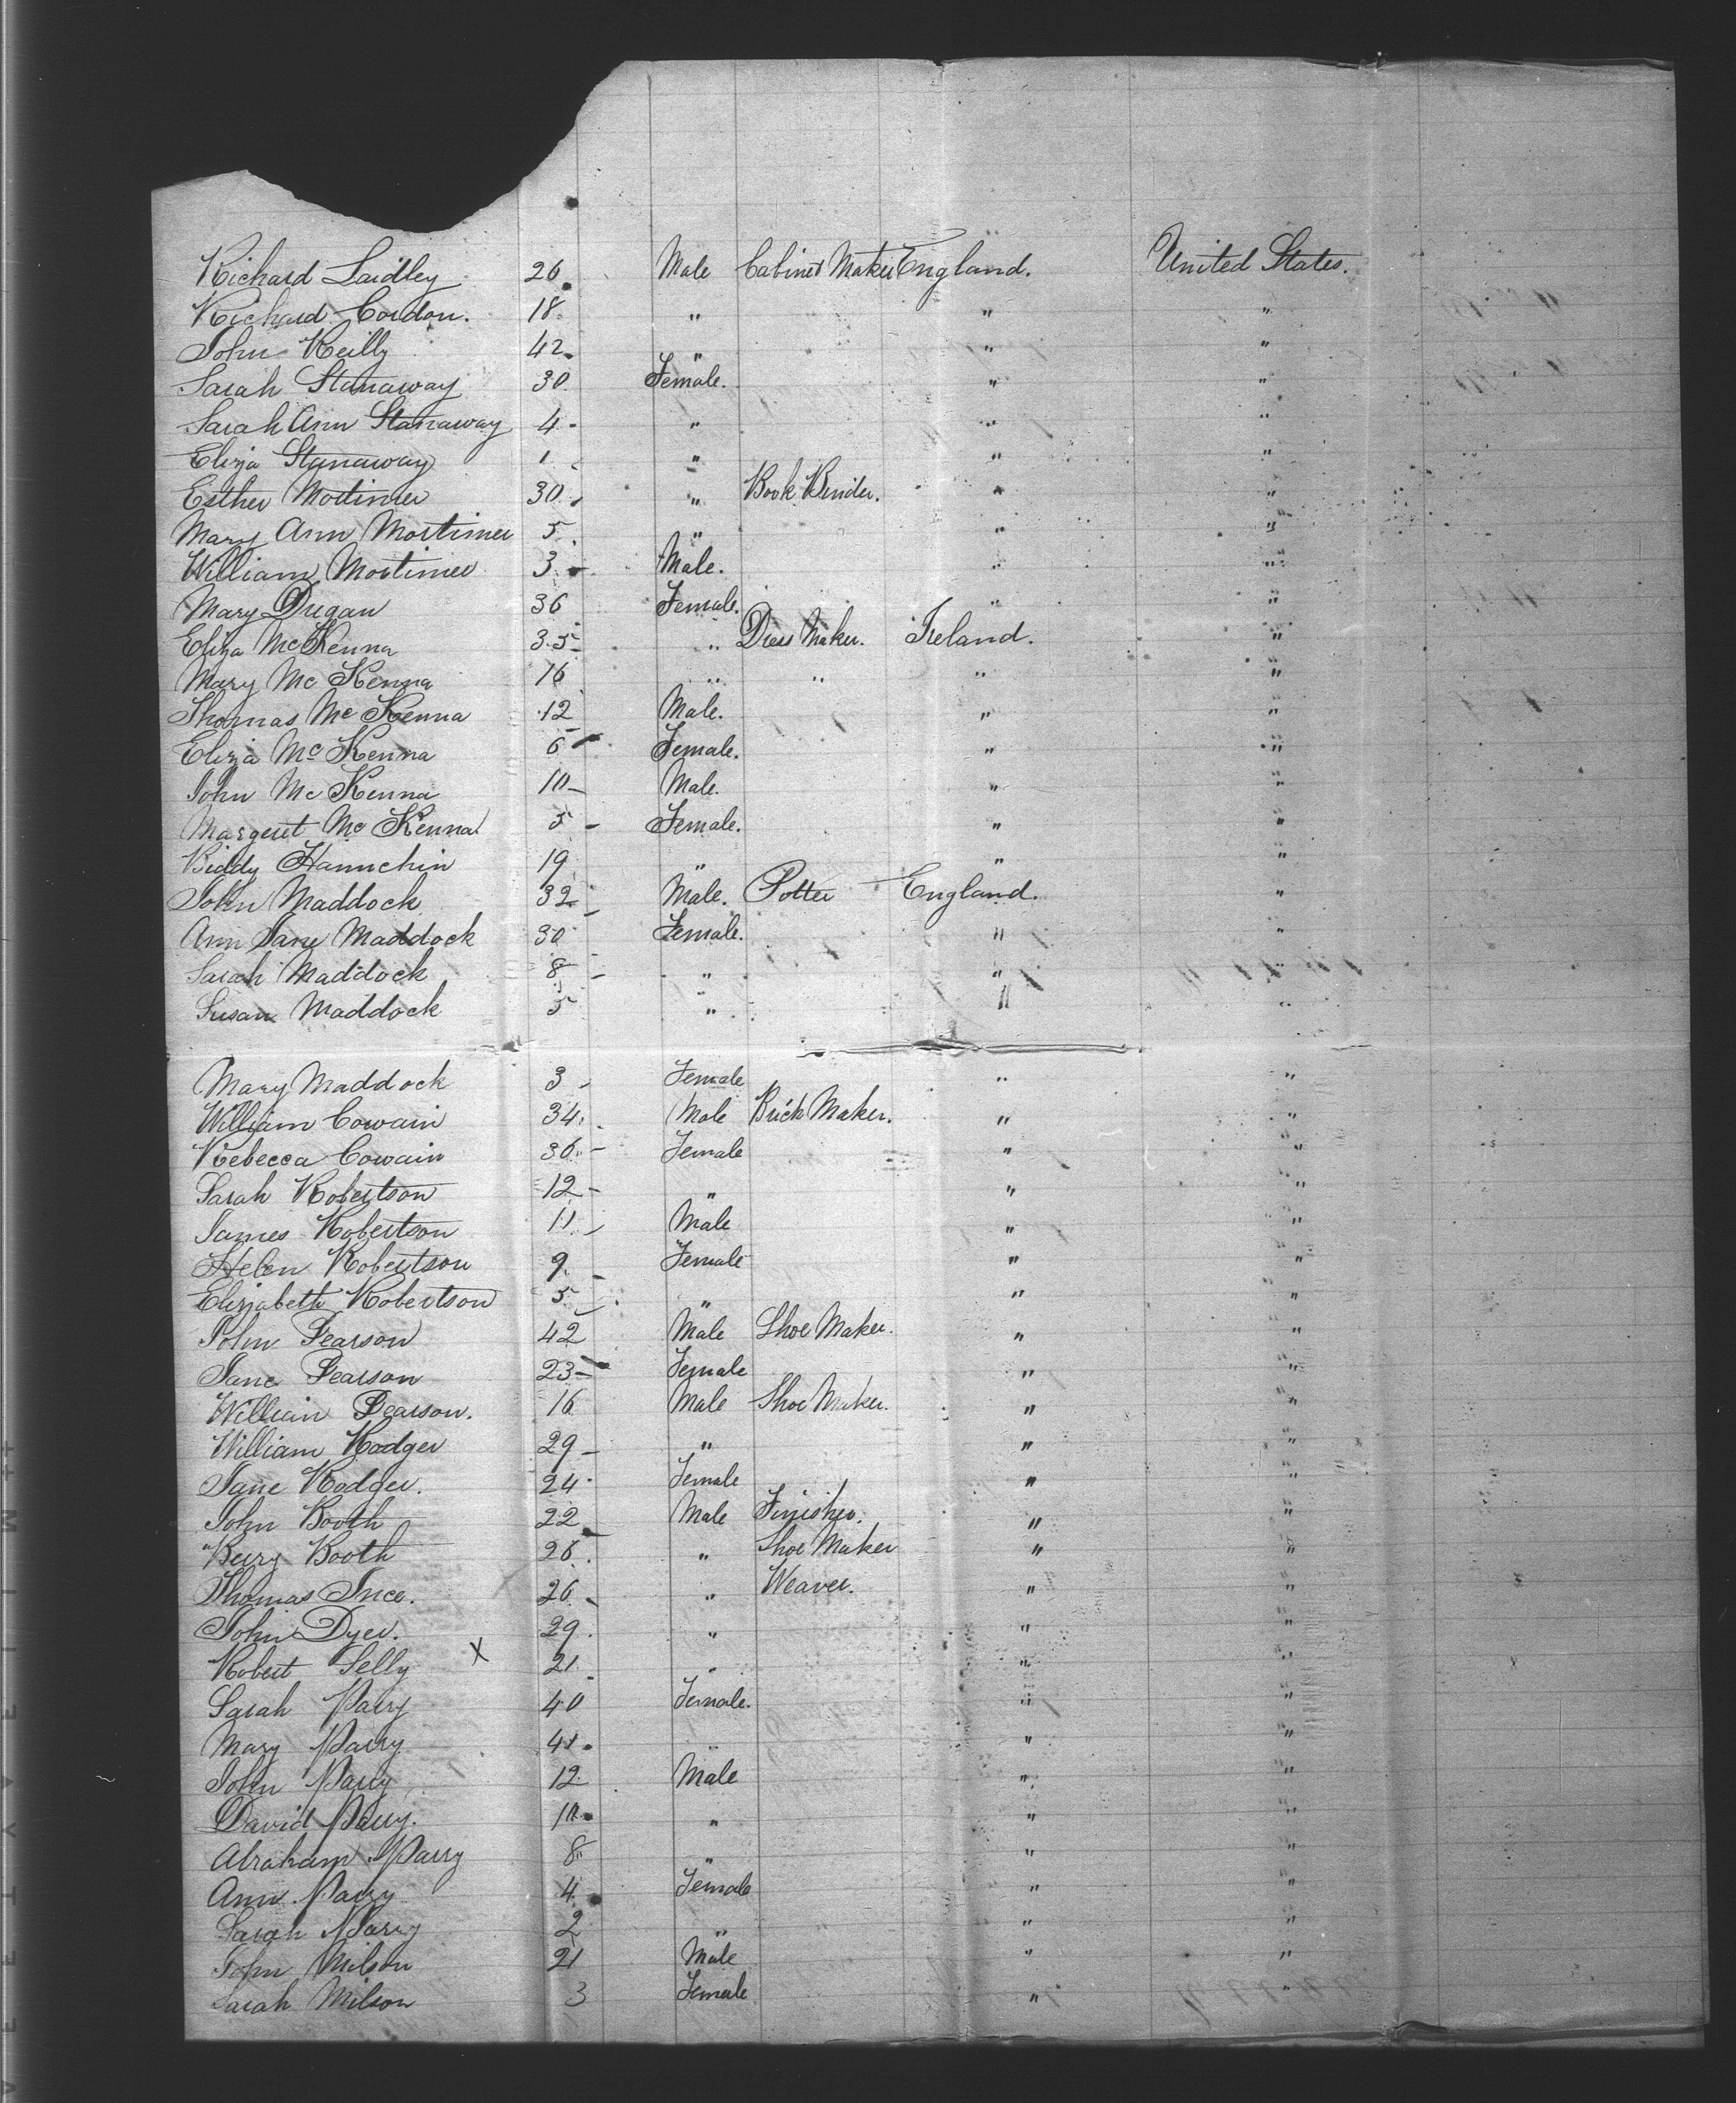 Richard Laidley 26 Male Cabinet Maker England. United States.
Richard Cordon. 18 " " "
John Reilly 42 " " "
Sarah Stanaway 30 Female. " "
Sarah Ann Stanaway 4 " " "
Eliza Stanaway 1 " " "
Esther Mortimer 30 " Book Binder. " "
Mary Ann Mortimer 5 " " "
William Mortimer 3 Male. " "
Mary Dugan 36 Female. " "
Eliza McKenna 35 " Dress Maker. Ireland. "
Mary McKenna 16 " " " "
Thomas McKenna 12 Male. " "
Eliza McKenna 6 Female. " "
John McKenna 10 Male. " "
Margeret McKenna 5 Female. " "
Biddy 19 " " "
John Maddock 32 Male. Potter England. "
Ann Jane Maddock 30 Female. " "
Sarah Maddock 8 " " "
Susan Maddock 5 " " "
Mary Maddock 3 Female " "
William Cowain 34 Male Brick Maker. " "
Rebecca Cowain 36 Female " "
Sarah Robertson 12 " " "
James Robertson 11 Male " "
Helen Robertson 9 Female " "
Elizabeth Robertson 5 " " "
John Pearson 42 Male Shoe Maker. " "
Jane Pearson 23 Female " "
William Pearson. 16 Male Shoe Maker. " "
William Rodger 29 " " "
Jane Rodger. 24 Female " "
John Booth 22 Male Finisher. " "
Berry Booth 26 " Shoe Maker " "
Thomas Ince. 26 " Weaver. " "
John Dyer. 29 " " "
Robert Selly X 21 " " "
Sarah Parry 40 Female. " "
Mary Parry 41 " " "
John Parry 12 Male " "
David Parry. 10 " " "
Abraham Parry 8 " " "
Ann Parry 4 Female " "
Sarah Parry 2 " " "
John Milson 21 Male " "
Sarah Milson 3 Female " "